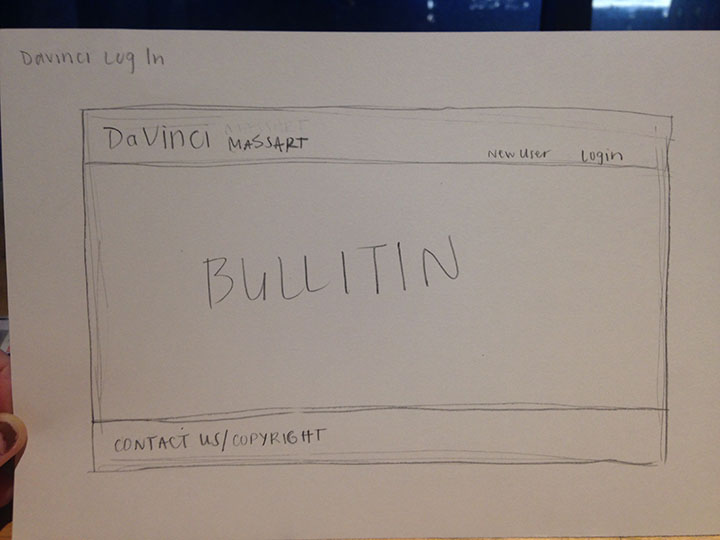 Davinci Log In
DaVinci MASSART
New User Login
BULLITIN
CONTACT US/COPYRIGHT